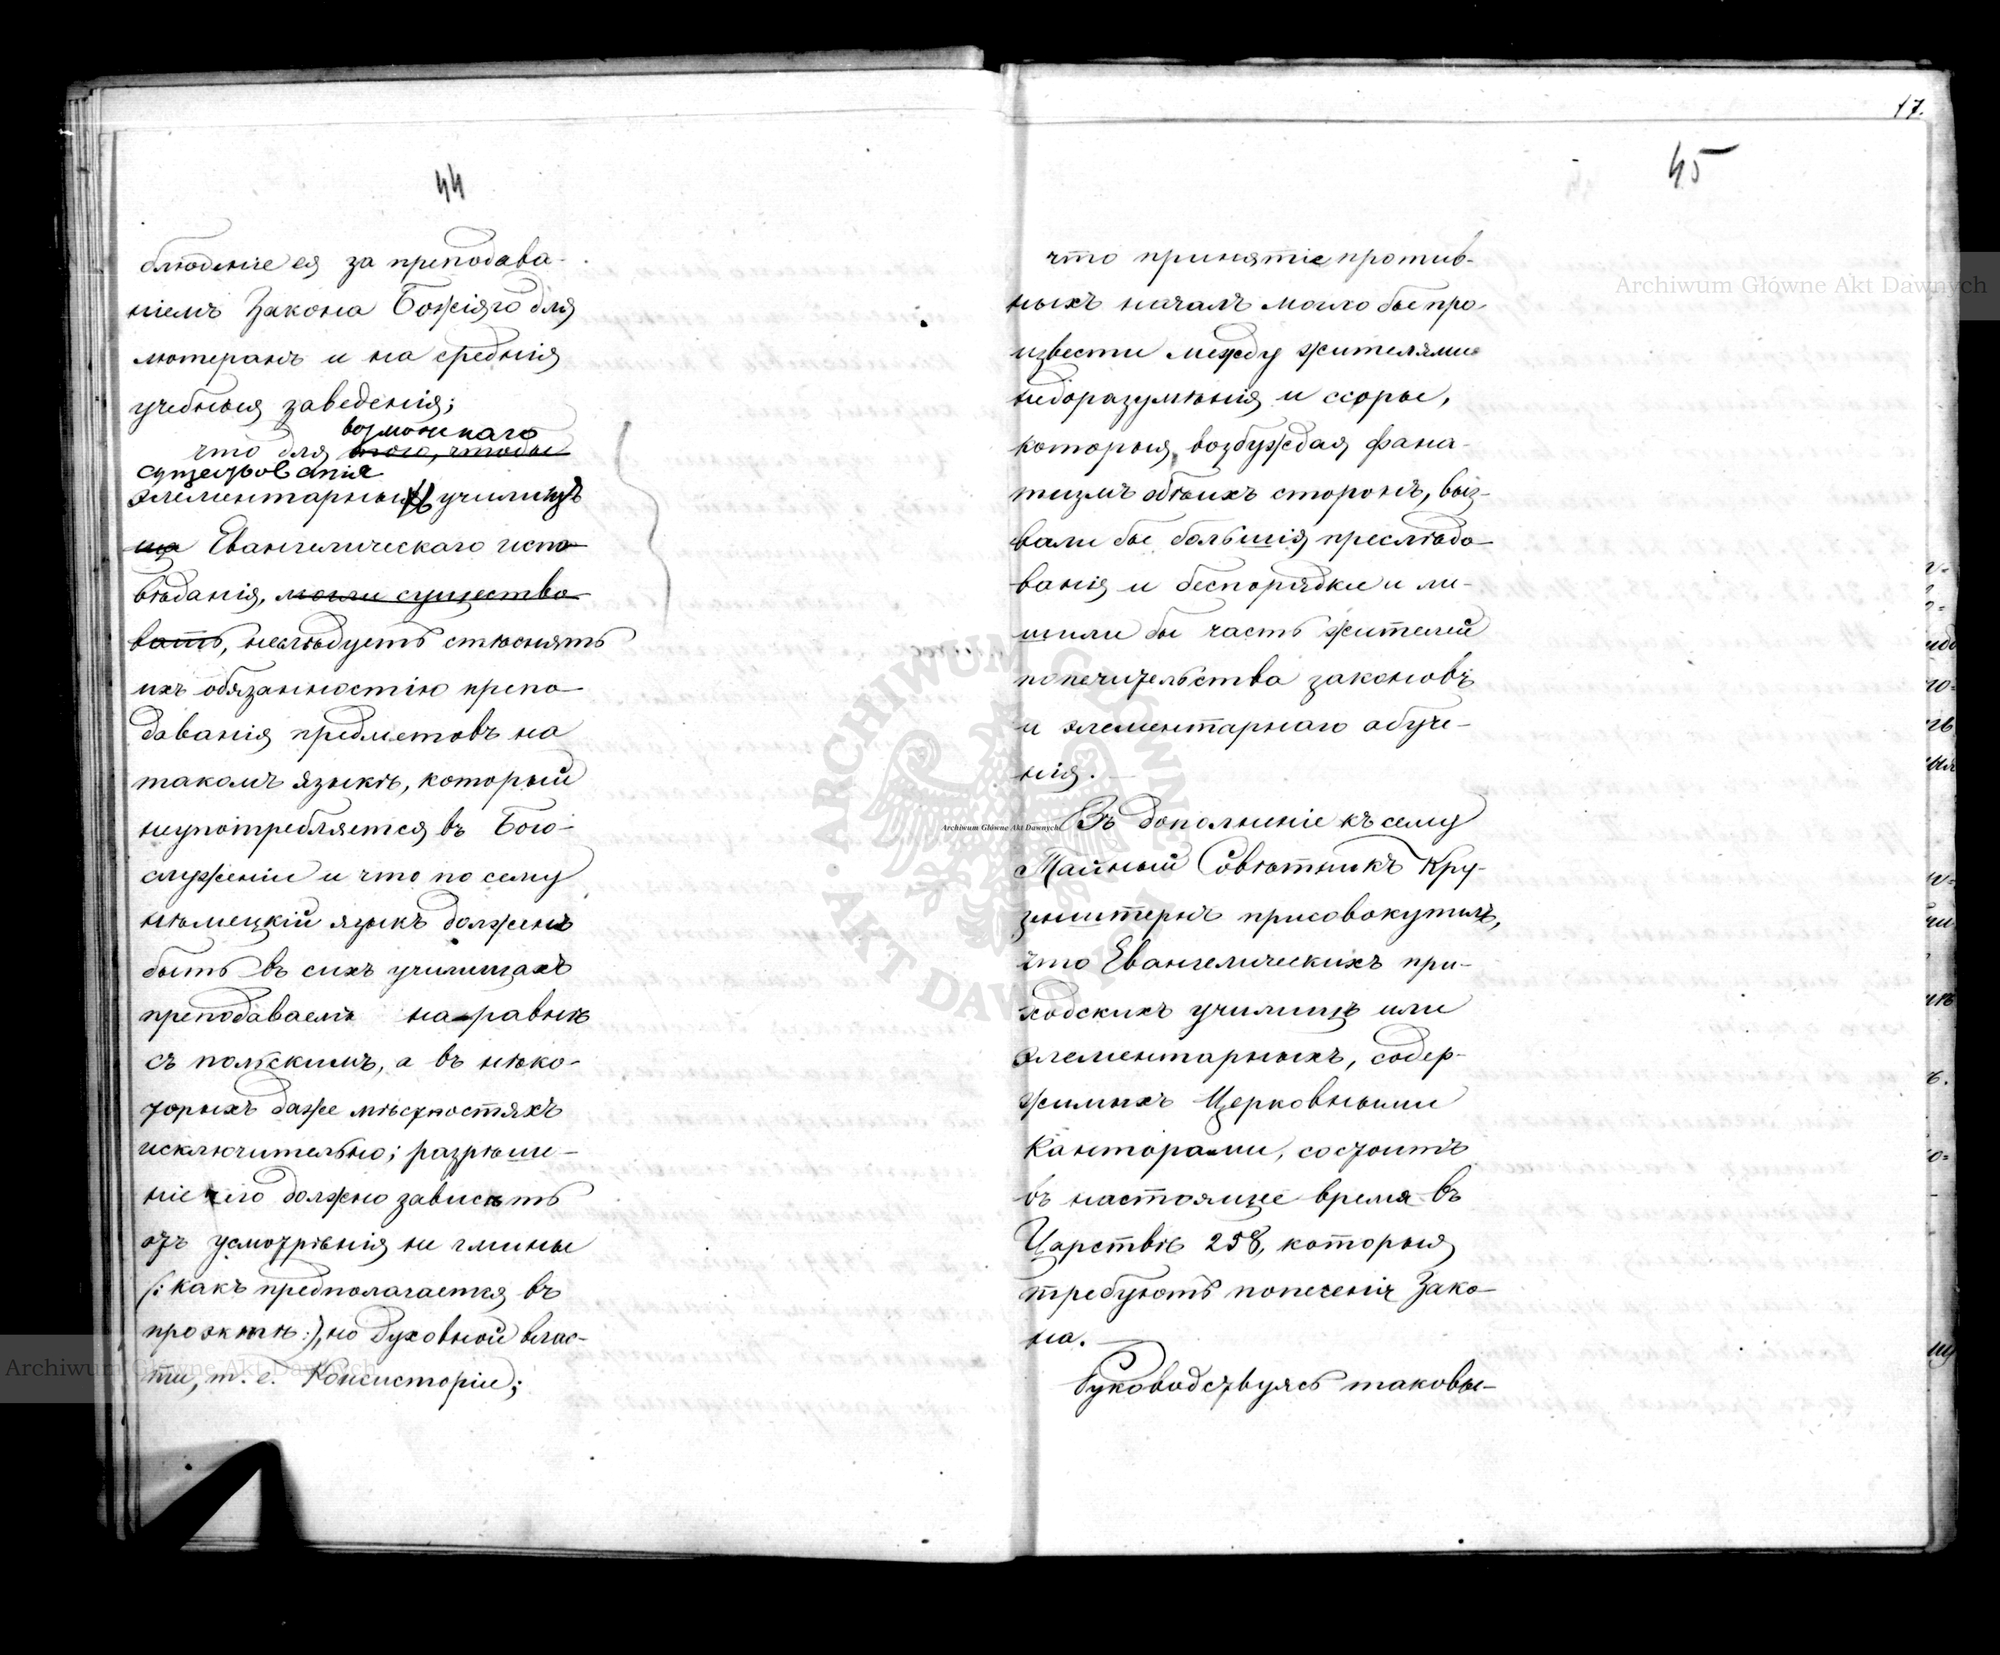 44
блюденіе ея за преподава-
ніемъ Закона Божіяго для
лютеранъ и на среднія
учебныя заведенія;
возможнаго
что для того, чтобы
существованія
элементарныхъ училищъ
ща Евангелическаго испо-
вѣданія, могли существо-
вать, неслѣдуетъ стѣснять
ихъ обязанностію препо-
даванія предметовъ на
такомъ языкѣ, который
неупотребляется въ Бого-
служеніи и что по сему
нѣмецкій языкъ долженъ
быть въ сихъ училищахъ
преподаваемъ на равнѣ
съ польскимъ, а въ нѣко-
торыхъ даже мѣстностяхъ
исключительно; разрѣше-
ніе чего должно зависѣть
отъ усмотрѣнія не гмины
(: какъ предполагается въ
проэктѣ :), но духовной влас-
ти, т. е. Консисторіи;
17.
45
что принятіе против-
ныхъ началъ могло бы про-
извести между жителями
недоразумѣнія и ссоры,
которыя, возбуждая фана-
тизмъ обѣихъ сторонъ, выз-
вали бы большія преслѣдо-
ванія и беспорядки и ли-
шили бы часть жителей
попечительства законовъ
и элементарнаго обуче-
нія.
Въ дополненіе къ сему
Тайный Совѣтникъ Кру-
зенштернъ присовокупилъ,
что Евангелическихъ при-
ходскихъ училищъ или
элементарныхъ, содер-
жимыхъ Церковными
Канторами, состоитъ
въ настоящее время въ
Царствѣ 258, которыя
требуютъ попеченія Зако-
на.
Руководствуясь таковы-
Archiwum Główne Akt Dawnych
Archiwum Główne Akt Dawnych
Archiwum Główne Akt Dawnych
ARCHIWUM GŁÓWNE AKT DAWNYCH